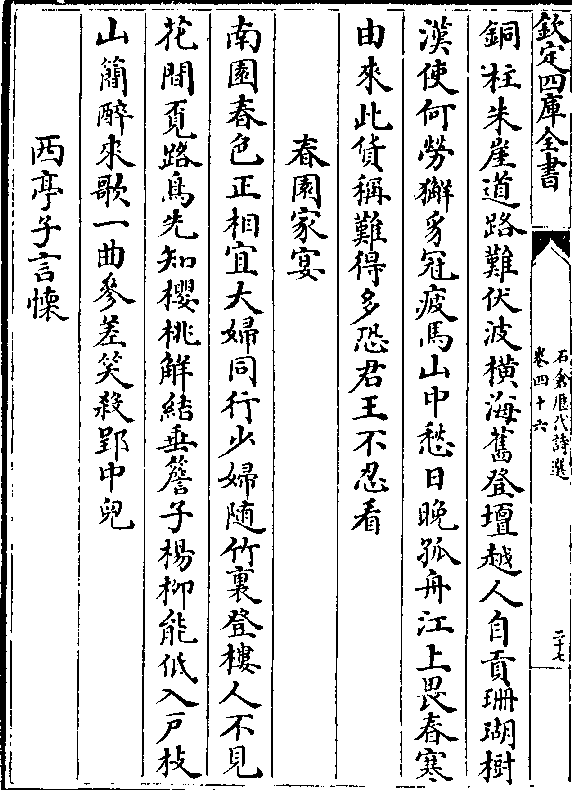 欽定四庫全書
石倉歷代詩選
卷四十六
二十七
銅柱朱崖道路難伏波橫海舊登壇越人自貢珊瑚樹
漢使何勞獬豸冠疲馬山中愁日晚孤舟江上畏春寒
由來此貨稱難得多恐君王不忍看
春園家宴
南園春色正相宜大婦同行少婦随竹裏登樓人不見
花間覓路鳥先知櫻桃解結垂簷子楊柳能低入戶枝
山簡醉來歌一曲參差笑殺郢中兒
西亭子言懷